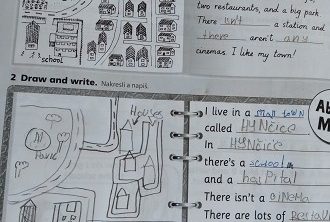 two restaurants, and a big park.
There isn't a station and
there aren't any
cinemas. I like my town!
school
2 Draw and write. Nakresli a napiš.
Houses
Park
I live in a small town
called Hynčice
In Hynčice
there's a school
and a hospital
There isn't a cinema
There are lots of